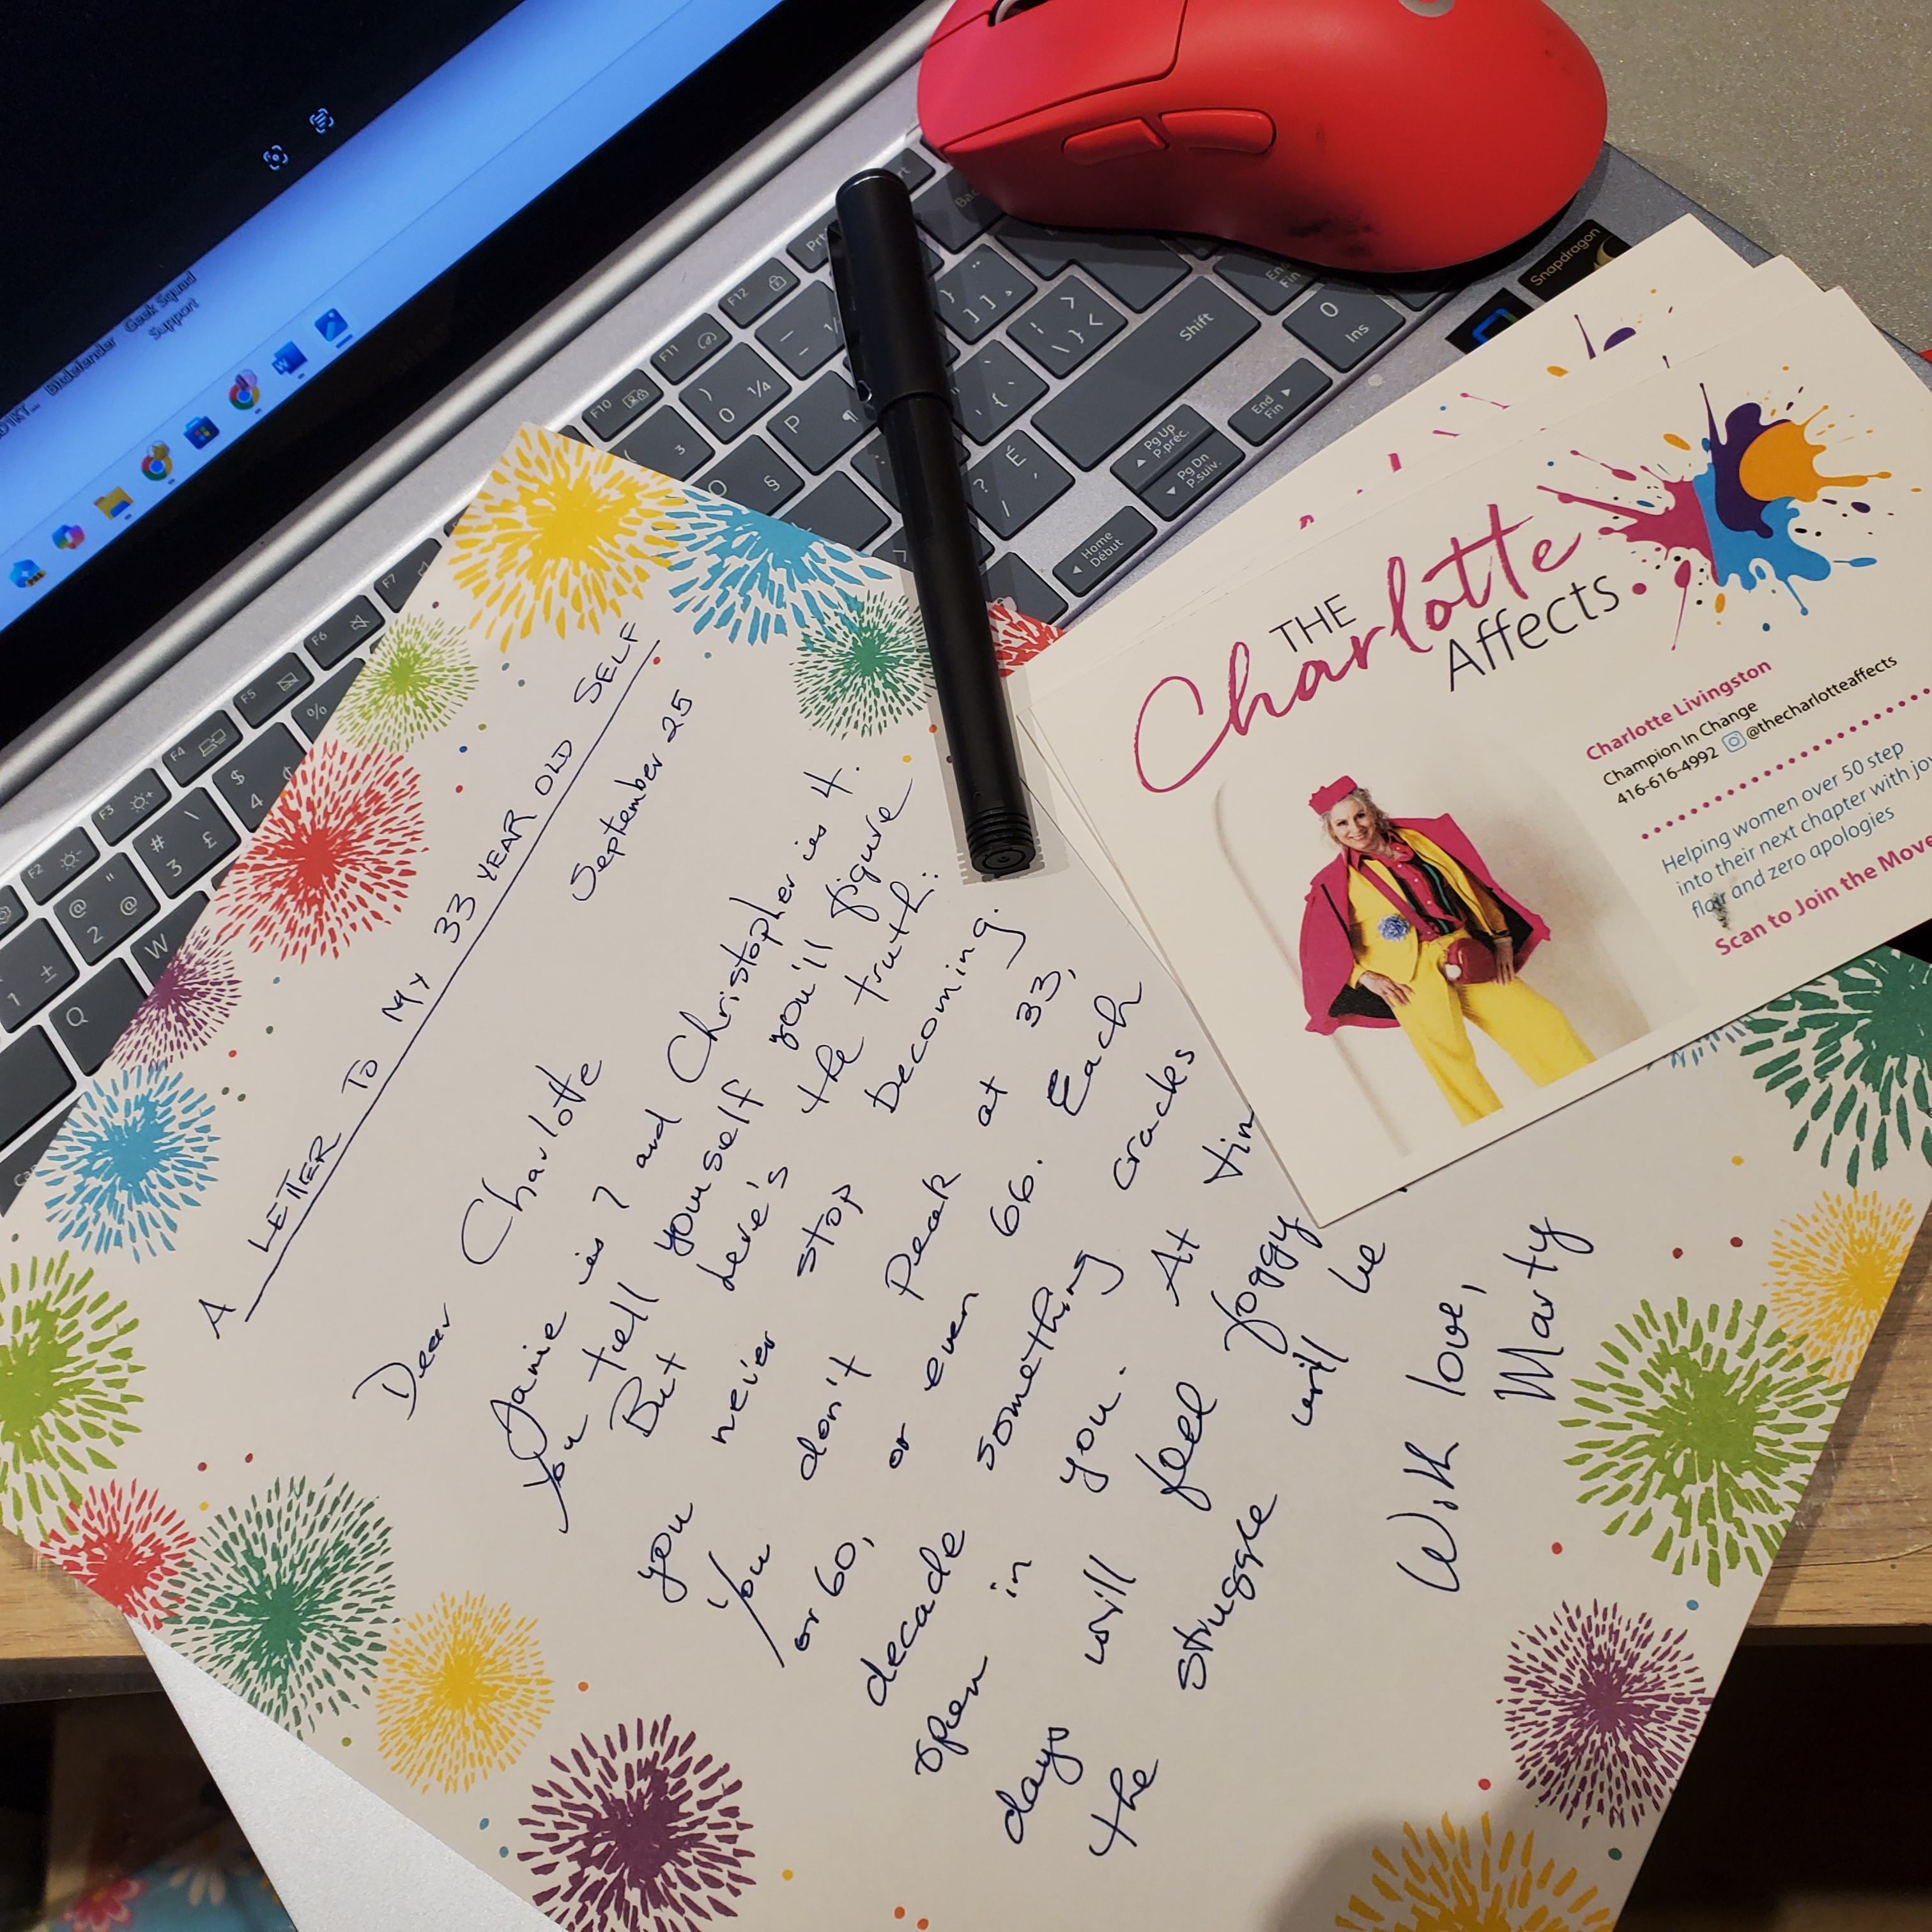 A LETTER TO MY 33 YEAR OLD SELF
September 25
Dear Charlotte
Jamie is 7 and Christopher is 4.
You tell yourself you'll figure
But here's the truth:
you never stop becoming.
You don't peak at 33,
or 60, or even 66. Each
decade something cracks
open in you. At
days will feel foggy
the struggle will be
With love,
Marty
THE
Charlotte
Affects
Charlotte Livingston
Champion In Change
416-616-4992 @thecharlotteaffects
Helping women over 50 step
into their next chapter with
flair and zero apologies
Scan to Join the
Snapdragon
Bitdefender
Geek Squad
Support
F12
F11
F10
F7
F6
F5
F4
F3
F2
Shift
End
Fin
0
Ins
Pg Up
P.préc.
Pg Dn
P.suiv.
End
Fin
Home
Début
) 0 1/4
P ¶
O §
É
? /
%
$ 4 ¢
# 3 \ £
@ 2 " @
1 ±
W
Q